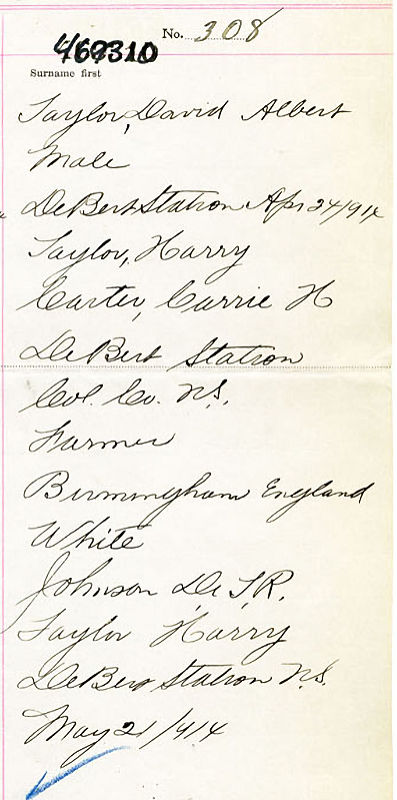 No. 308
469310
Surname first
Taylor, David Albert
Male
DeBert Station Apr 24/914
Taylor, Harry
Carter, Carrie H
DeBert Station
Col. Co. N.S.
Farmer
Birmingham England
White
Johnson Dr T.R.
Taylor Harry
DeBert Station N.S.
May 21/914